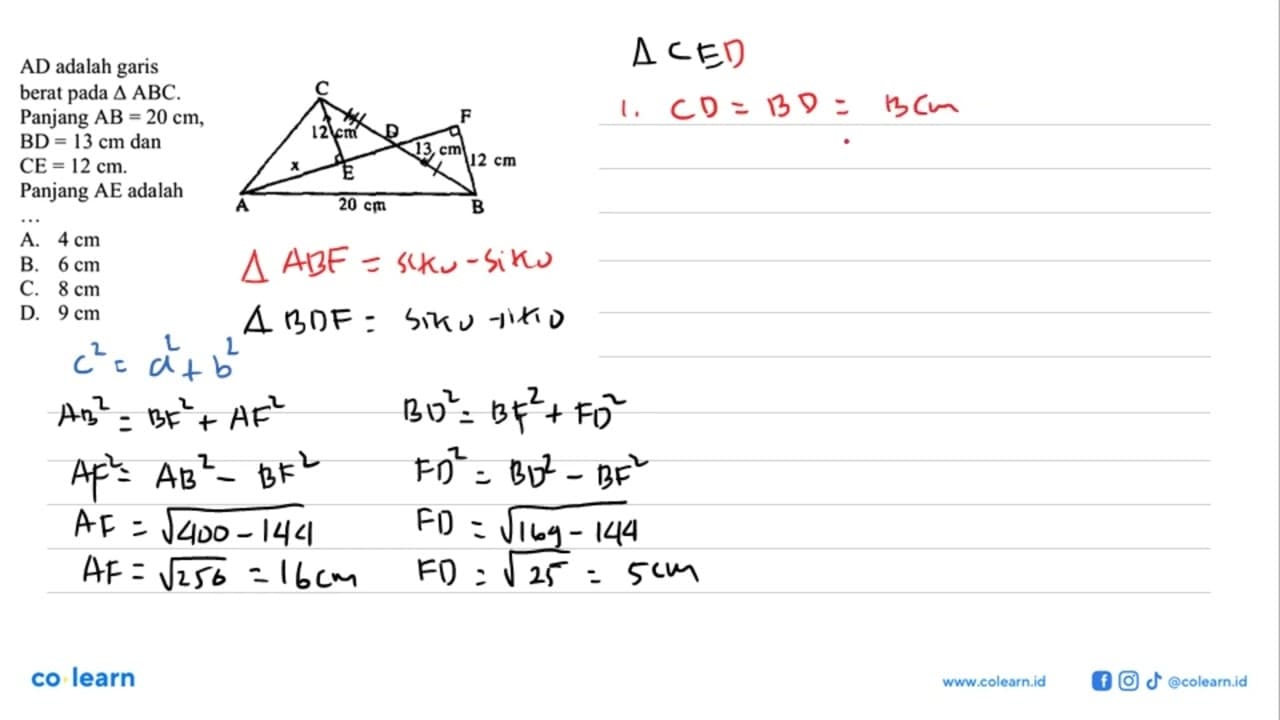 AD adalah garis
berat pada Δ ABC.
Panjang AB = 20 cm,
BD = 13 cm dan
CE = 12 cm.
Panjang AE adalah
...
A. 4 cm
B. 6 cm
C. 8 cm
D. 9 cm
C
F
12 cm
D
13 cm
12 cm
x
E
A
20 cm
B
Δ ABF = siku-siku
Δ BDF = siku-siku
c² = a² + b²
AB² = BF² + AF²
AF² = AB² - BF²
AF = √400 - 144
AF = √256 = 16 cm
BD² = BF² + FD²
FD² = BD² - BF²
FD = √169 - 144
FD = √25 = 5 cm
Δ CED
1. CD = BD = 13 cm
co·learn
www.colearn.id
@colearn.id